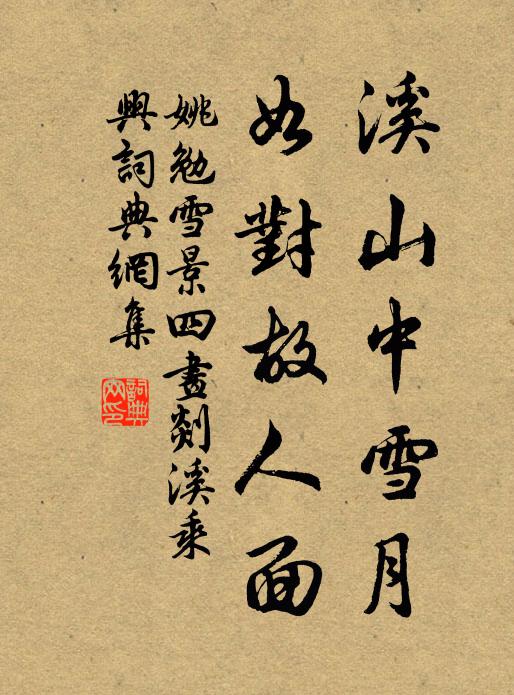 溪山中雪月
如對故人面
姚勉雪景四畫剡溪乘
興詞典網集
詞典
网印